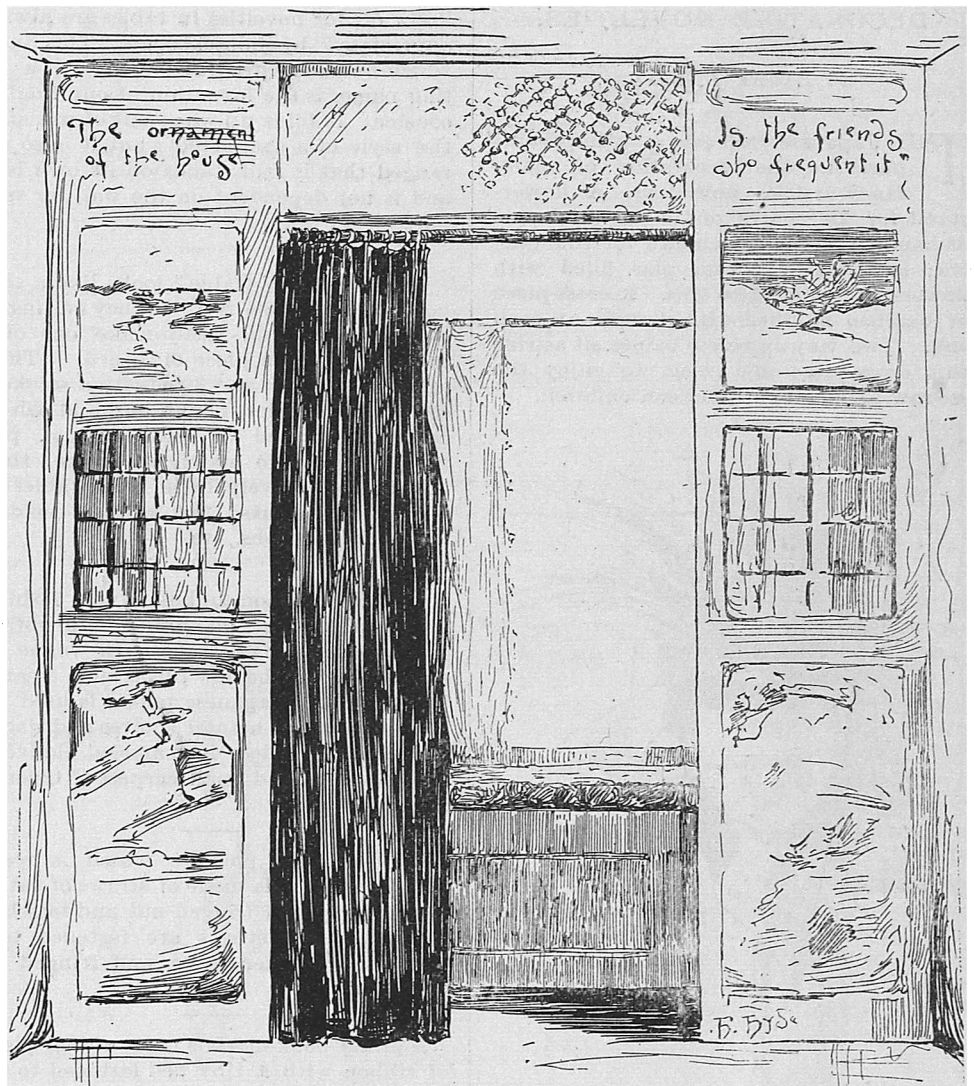 The ornament
of the house
Is the friends
who frequent it"